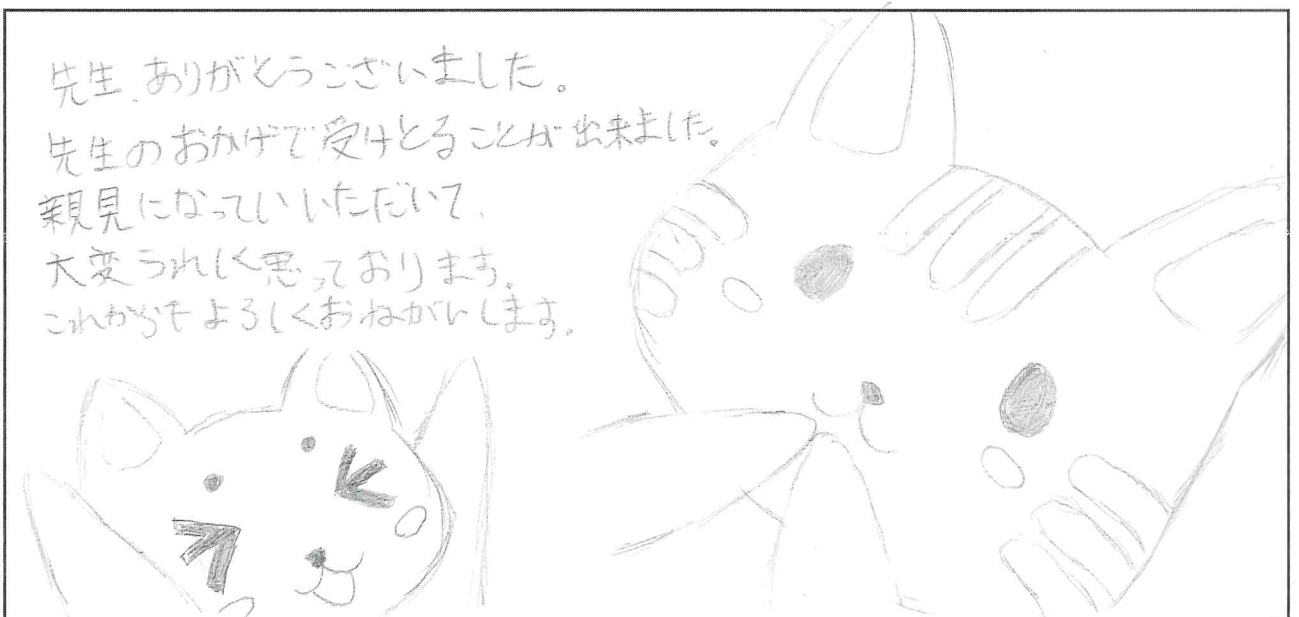 先生、ありがとうございました。
先生のおかげで受けとることが出来ました。
親見になっていいただいて、
大変うれしく思っております。
これからもよろしくおねがいします。